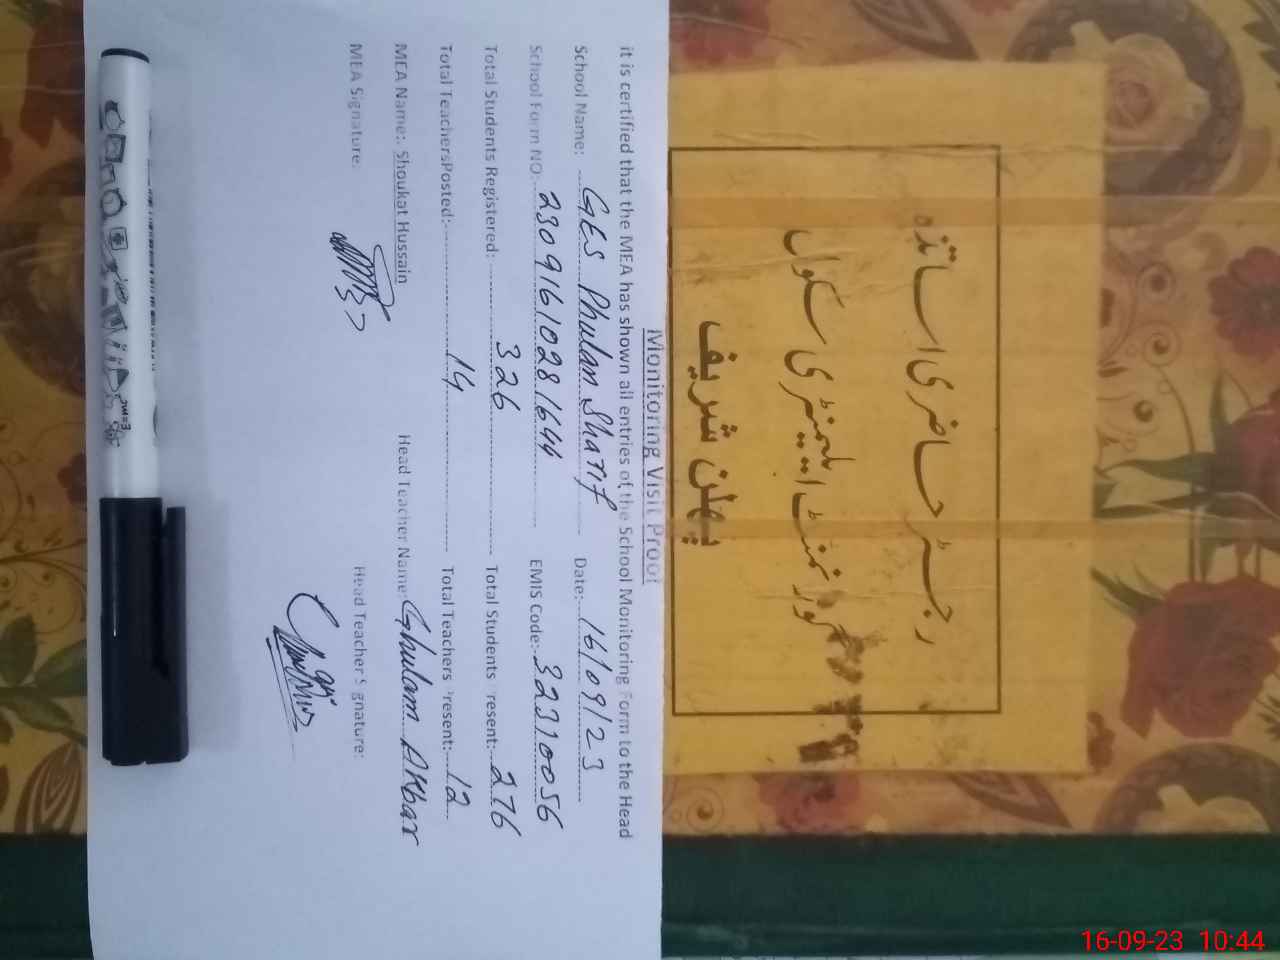 رجسٹر حاضری اساتذہ
گورنمنٹ ایلیمنٹری سکول
پھلن شریف
Monitoring Visit Proof
it is certified that the MEA has shown all entries of the School Monitoring Form to the Head
School Name: GES Phulan Sharif Date: 16/09/23
School Form NO: 23091610281644 EMIS Code: 32310056
Total Students Registered: 326 Total Students Present: 276
Total TeachersPosted: 14 Total Teachers Present: 12
MEA Name: Shoukat Hussain Head Teacher Name: Ghulam Akbar
MEA Signature: Head Teacher Signature:
16-09-23 10:44